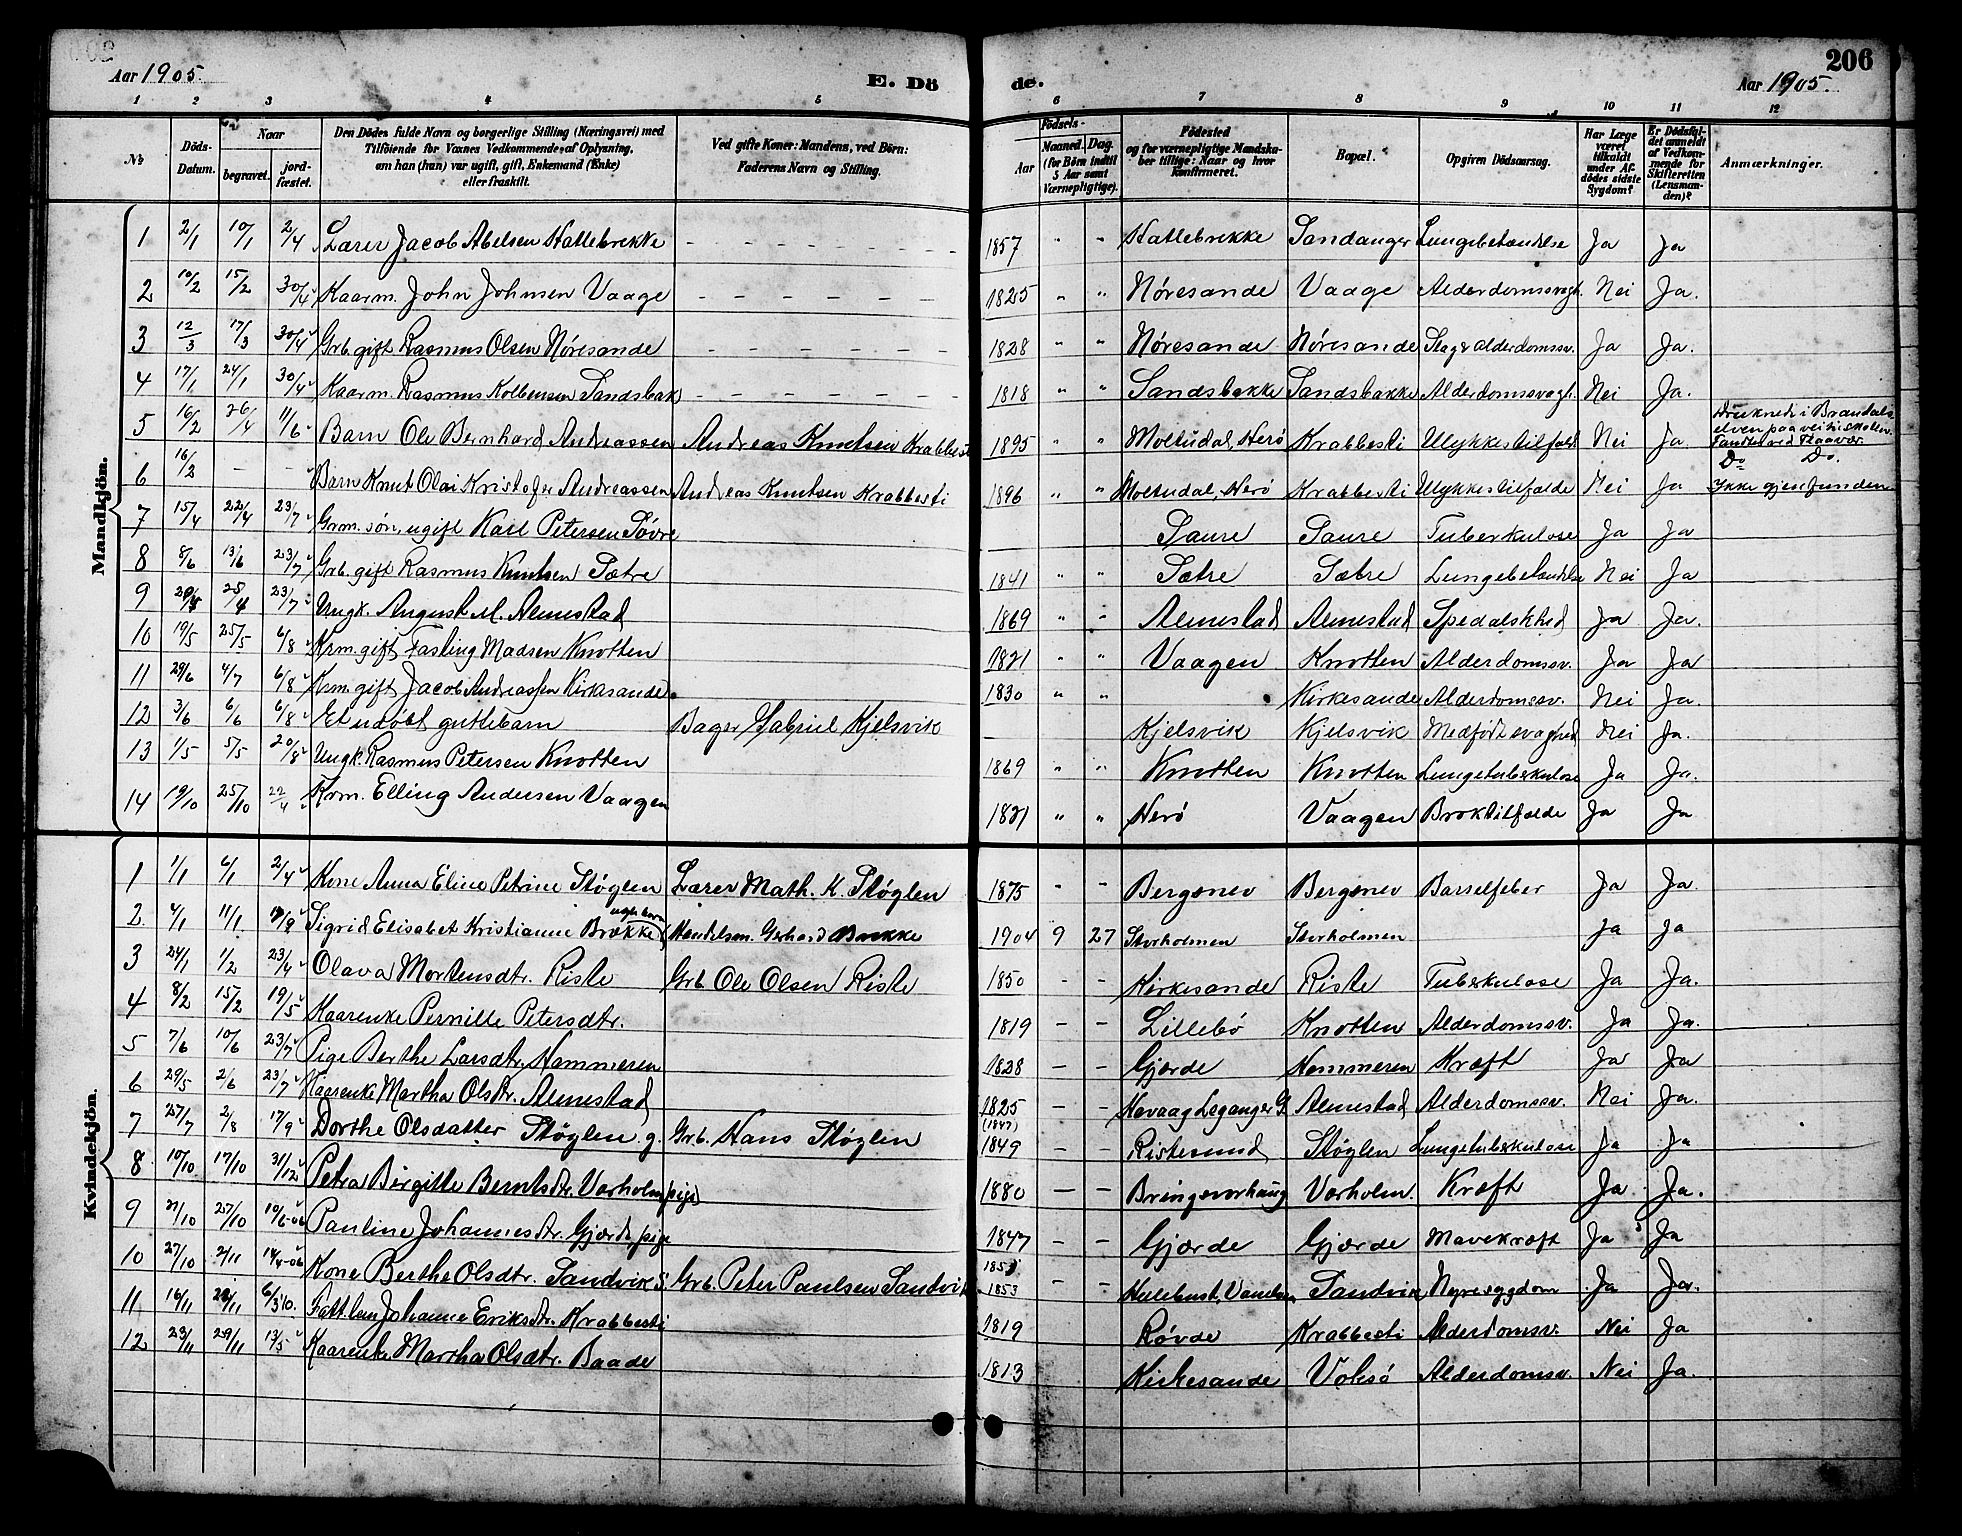 206
Aar 1905.
E. Dö
de.
Aar 1905.
1 2 3 4 5 6 7 8 9 10 11 12
No
Döds-Datum.
Naar
begravet.
jord-fæstet.
Den Dödes fulde Navn og borgerlige Stilling (Næringsvei) med
Tilföiende for Voxnes Vedkommende, af Oplysning,
om han (hun) var ugift, gift, Enkemand (Enke)
eller fraskilt.
Ved gifte Koner: Mandens, ved Börn:
Faderens Navn og Stilling.
Födsels-
Aar
Maaned. (for Börn indtil 5 Aar samt Værnepligtige).
Dag.
Födested
og for værnepligtige Mandska-
ber tillige: Naar og hvor
konfirmeret.
Bopæl.
Opgiven Dödsaarsag.
Har Læge været tilkaldt under Af-dödes sidste Sygdom?
Er Dödsfal-det anmeldt af Vedkom-mende for Skifteretten (Lensman-den)?
Anmærkninger.
Mandkjön.
1 2/1 10/1 2/4 Lærer Jacob Abelsen Hallebrekke 1857 " " Hallebrekke Sandanger Lungebetændelse Ja Ja
2 10/2 15/2 30/4 Kaarm. John Johnsen Vaage 1825 " " Nøresande Vaage Alderdomssvagh. Nei Ja.
3 12/3 17/3 30/4 Grb. gift Rasmus Olsen Nøresande 1828 " " Nøresande Nøresande Slag & alderdomssv. Ja Ja.
4 17/1 24/1 30/4 Kaarm. Rasmus Kolbensen Sandsbak 1818 " " Sandsbakke Sandsbakke Alderdomssvagh. Nei Ja.
5 16/2 26/4 11/6 Barn Ole Bernhard Andreassen Andreas Knutsen Krabbesti 1895 " " Moltudal, Herø Krabbesti Ulykkestilfæld Nei Ja. Druknede i Brandals elven paa vei til skolen. Fandtes ved Flaavær.
6 16/2 - - Barn Knut Olai Kristofer Andreassen Andreas Knutsen Krabbesti 1896 " " Moltudal, Herø Krabbesti Ulykkestilfælde Nei Ja Do Do. Ikke gjenfunden
7 15/4 22/4 23/7 Grm. søn, ugift Karl Petersen Søvre Saure Saure Tuberkulose Ja Ja
8 8/6 13/6 23/7 Grb. gift Rasmus Knutsen Sætre 1841 " " Sætre Sætre Lungebetændelse Nei Ja
9 28/4 23/7 Ungk. August M. Almestad 1869 " - Almestad Almestad Spedalskhed Ja Ja.
10 19/5 25/5 6/8 Krm. gift Fasting Madsen Knotten 1821 " " Vaagen Knotten Alderdomssv. Ja Ja
11 29/6 4/7 6/8 Krm. gift Jacob Andreassen Kirkesande 1830 " " Kirkesande Alderdomssv. Nei Ja.
12 3/6 6/6 6/8 Et udøbt guttebarn Bager Gabriel Kjelsvik - Kjelsvik Kjelsvik Medfødt svaghed Nei Ja.
13 1/5 5/5 20/8 Ungk. Rasmus Petersen Knotten 1869 " " Knotten Knotten Lungetuberkulose Ja Ja.
14 19/10 25/10 22/4 Krm. Elling Andersen Vaagen 1821 " " Herø Vaagen Broktilfælde Ja Ja
Kvindekjön.
1 1/1 6/1 2/4 Kone Anna Eline Petrine Støylen Lærer Math. K. Støylen 1875 " - Bergsnev Bergsnev Barselfeber Ja Ja.
2. 4/1 11/1 Sigrid Elisabet Kristianne Brække Handelsm. Gerhard Brekke 1904 9 27 Storholmen Storholmen Ja Ja
3 24/1 1/2 23/4 Olava Mortensdtr. Riste Grb. Ole Olsen Riste 1850 - - Kirkesande Riste Tuberkulose Ja Ja.
4 8/2 15/2 19/5 Kaarenke Pernille Petersdtr. 1819 - - Lillebø Knotten Alderdomssv. Ja Ja.
5 7/6 10/6 23/7 Pige Berthe Larsdtr. Hammeren 1828 - - Gjerde Hammeren Kræft Ja Ja
6 29/5 2/6 23/7 Kaarenke Martha Olsdtr. Almestad 1825 - - Havaag Leganger G Almestad Alderdomssv. Nei Ja.
7 27/7 2/8 17/9 Dorthe Olsdatter Støylen g. Grb. Hans Støylen (1847) 1849 - - Ristesund Støylen Lungetuberkulose Ja Ja
8 10/10 17/10 31/12 Petra Birgitte Berntsdtr. Vorholm (pige) 1880 - - Bringsvorhaug Vorholm. Kræft Ja Ja.
9 21/10 27/10 10/6-06 Pauline Johannesdtr. Gjærde, pige 1847 - - Gjærde Gjærde Mavekræft Ja Ja
10 27/10 2/11 14/4-06 Kone Berthe Olsdtr. Sandvik S. Grb. Peter Paulsen Sandvik 1853 - - Sandvik Nyresygdom Ja Ja.
11 16/11 6/3 10. Fattiglem Johanne Eriksdtr. Krabbesti 1819 Røvde Krabbesti Alderdomsv. Nei Ja
12 23/11 29/11 13/5 Kaarenke Martha Olsdtr. Baade 1813 Kirkesande Voksø Alderdomsv. Nei Ja.